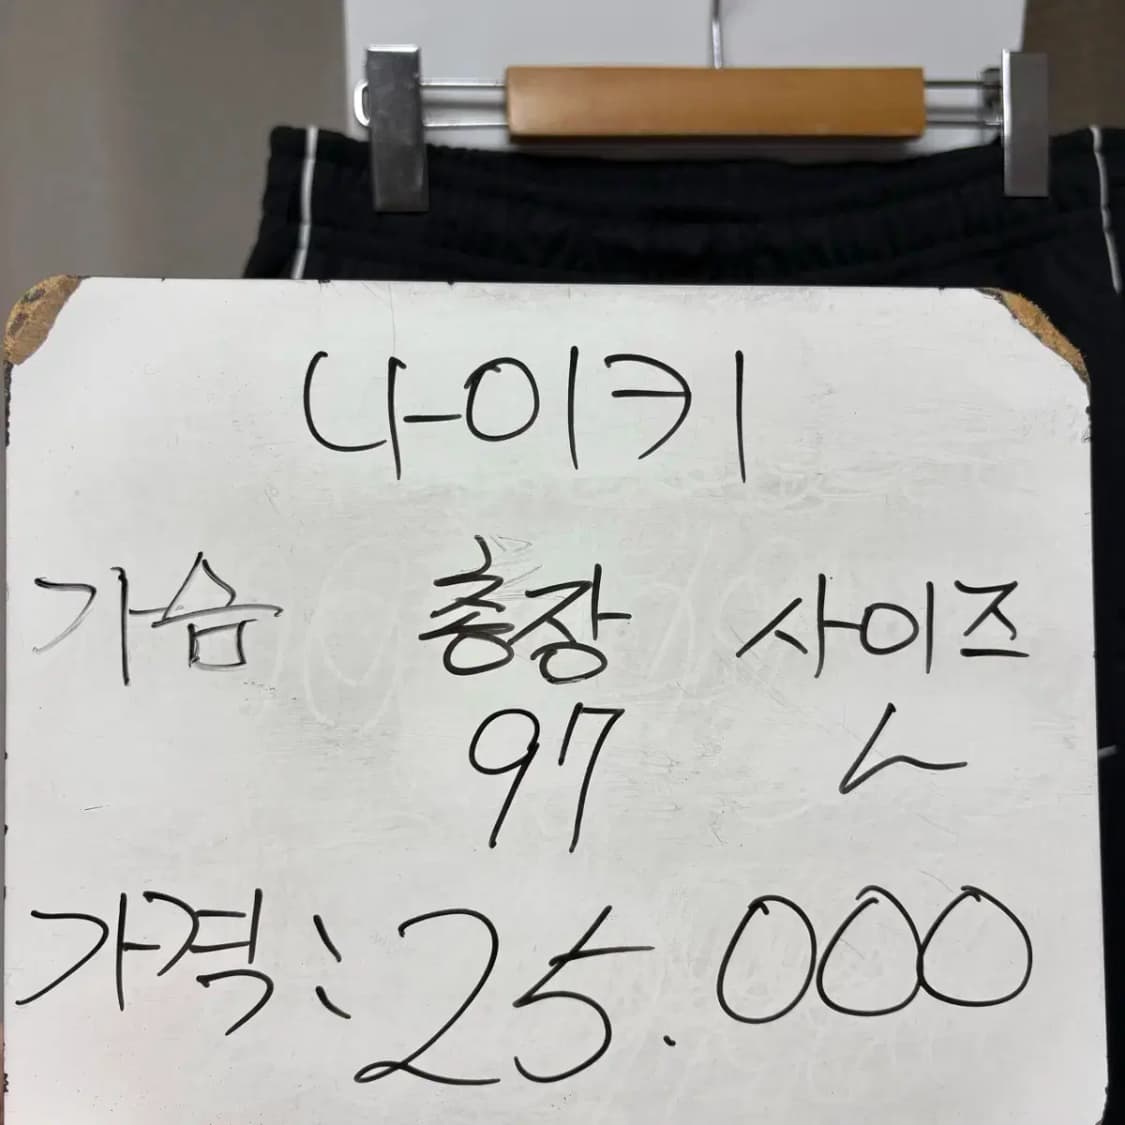 나이키
가슴 총장 사이즈
97 L
가격: 25.000